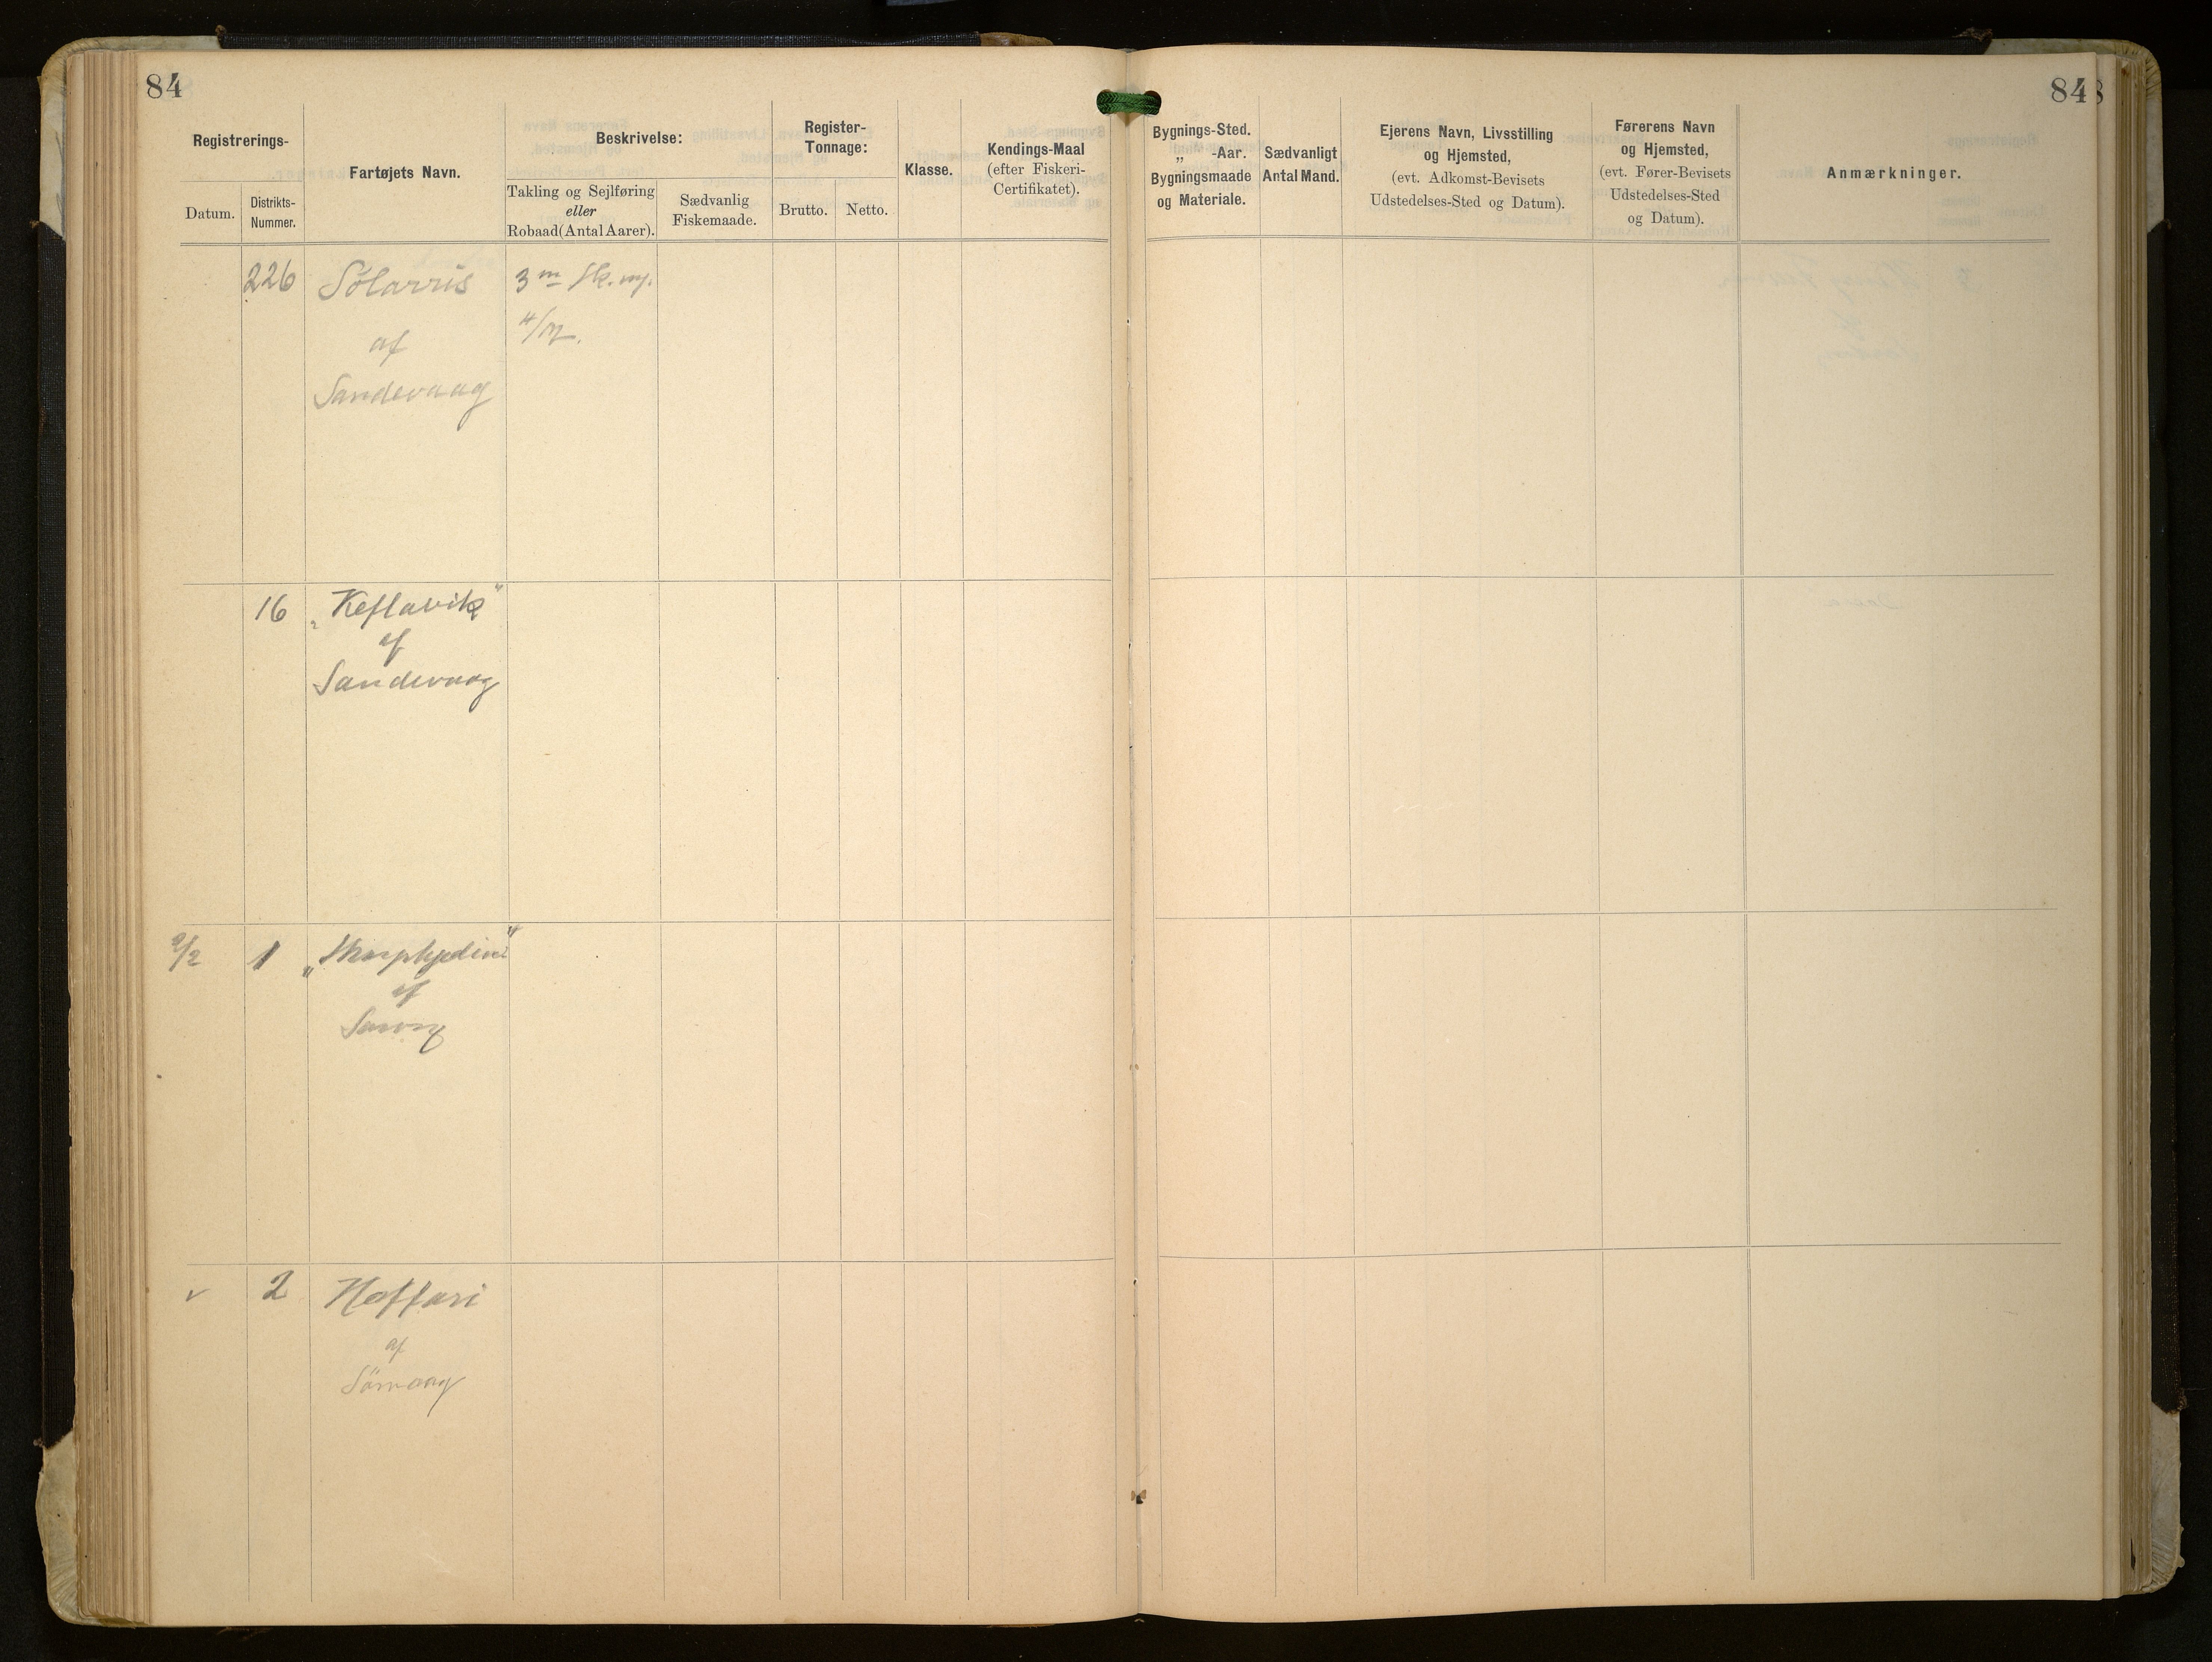 84
Registrerings-
Datum.
Distrikts-
Nummer.
Fartøjets Navn.
Beskrivelse:
Takling og Sejlføring
eller
Robaad (Antal Aarer).
Sædvanlig
Fiskemaade.
Register-
Tonnage:
Brutto.
Netto.
Klasse.
Kendings-Maal
(efter Fiskeri-
Certifikatet).
84
Bygnings-Sted.
„ -Aar.
Bygningsmaade
og Materiale.
Sædvanligt
Antal Mand.
Ejerens Navn, Livsstilling
og Hjemsted,
(evt. Adkomst-Bevisets
Udstedelses-Sted og Datum).
Førerens Navn
og Hjemsted,
(evt. Fører-Bevisets
Udstedelses-Sted
og Datum).
Anmærkninger.
226 Sólarris 3 m
af
Sandevaag
16 „Keflavik"
af
Sandevaag
9/2 1
af
2
af
Sörvaag